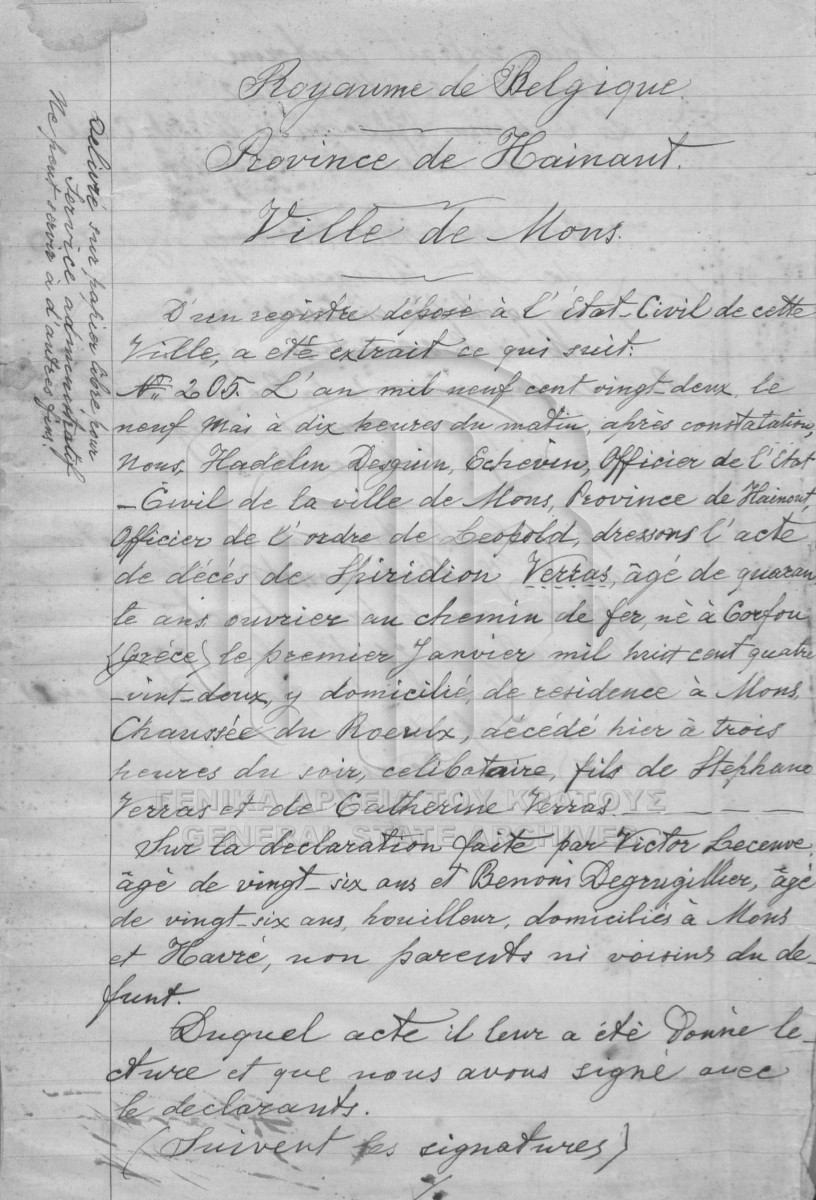 Royaume de Belgique.
Province de Hainaut.
Ville de Mons.
Délivré sur papier libre pour
Service administratif
Ne peut servir à d'autres fins.
D'un registre déposé à l'État-Civil de cette
Ville, a été extrait ce qui suit:
N° 205. L'an mil neuf cent vingt-deux, le
neuf Mai à dix heures du matin, après constatation,
Nous, Hadelin Desguin, Echevin, Officier de l'État
-Civil de la ville de Mons, Province de Hainaut,
Officier de l'ordre de Leopold, dressons l'acte
de décés de Spiridion Verras, âgé de quaran
te ans ouvrier au chemin de fer, né à Corfou
(Gréce) le premier Janvier mil huit cent quatre
-vint-deux, y domicilié, de residence à Mons
Chaussée du Roeulx, décédé hier à trois
heures du soir, celibataire, fils de Stephane
Verras et de Catherine Verras.
ΓΕΝΙΚΑ ΑΡΧΕΙΑ ΤΟΥ ΚΡΑΤΟΥΣ
GENERAL STATE ARCHIVES
Sur la declaration faite par Victor Leceuve,
âgé de vingt-six ans et Benoni Degrugillier, âgé
de vingt-six ans, houilleur, domiciliés à Mons
et Havré, non parents ni voisins du de-
funt.
Duquel acte il leur a été donné le-
cture et que nous avons signé avec
le declarants.
(Suivent les signatures)